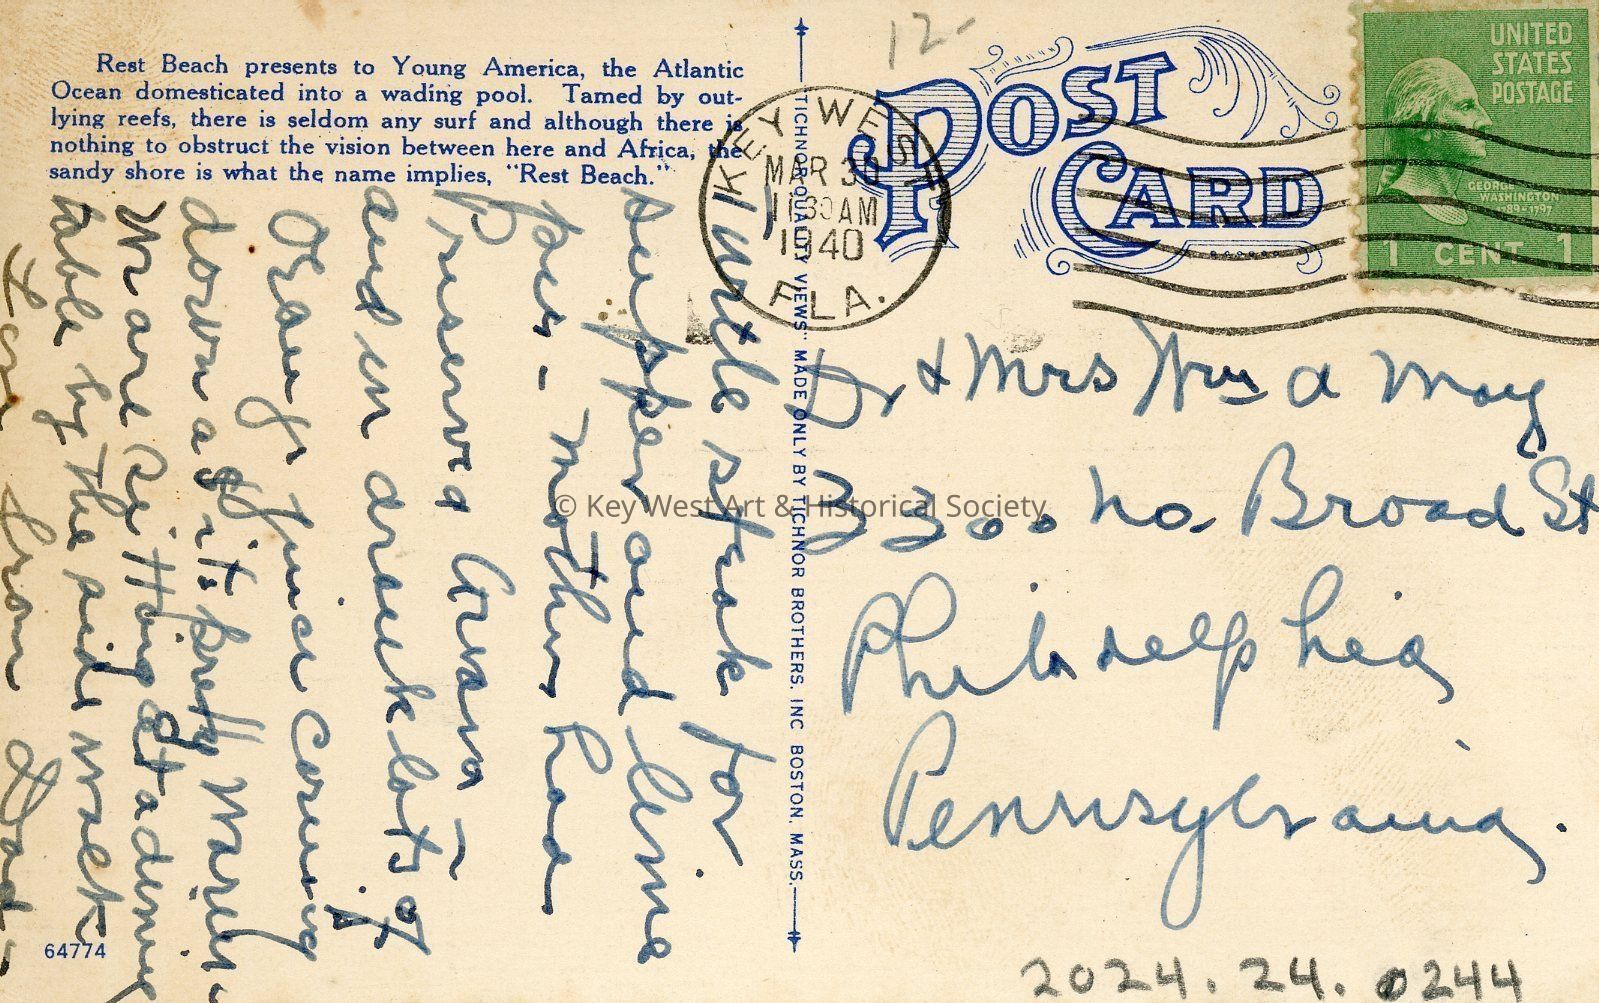 12-
Rest Beach presents to Young America, the Atlantic
Ocean domesticated into a wading pool. Tamed by out-
lying reefs, there is seldom any surf and although there is
nothing to obstruct the vision between here and Africa, the
sandy shore is what the name implies, "Rest Beach."
KEY WEST
MAR 30
AM
1940
FLA.
POST
CARD
UNITED
STATES
POSTAGE
GEORGE
WASHINGTON
1 CENT 1
TICHNOR QUALITY VIEWS" MADE ONLY BY TICHNOR BROTHERS. INC BOSTON. MASS.
Turtle steak for
supper and lime
pie - Mother had
and drank lots of
Orange Juice coming
down as its pretty warm
We are sitting at a
table by the side walk
Love from Dad -
Dr & Mrs Wm A May
3300 No. Broad St
Philadelphia
Pennsylvania.
© Key West Art & Historical Society
64774
2024.24.0244